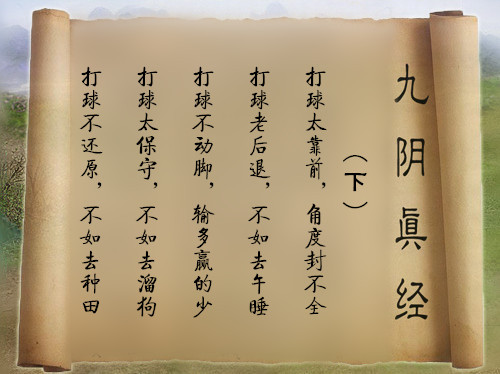 九阴真经
（下）
打球太靠前，角度封不全
打球老后退，不如去午睡
打球不动脚，输多赢的少
打球太保守，不如去溜狗
打球不还原，不如去种田